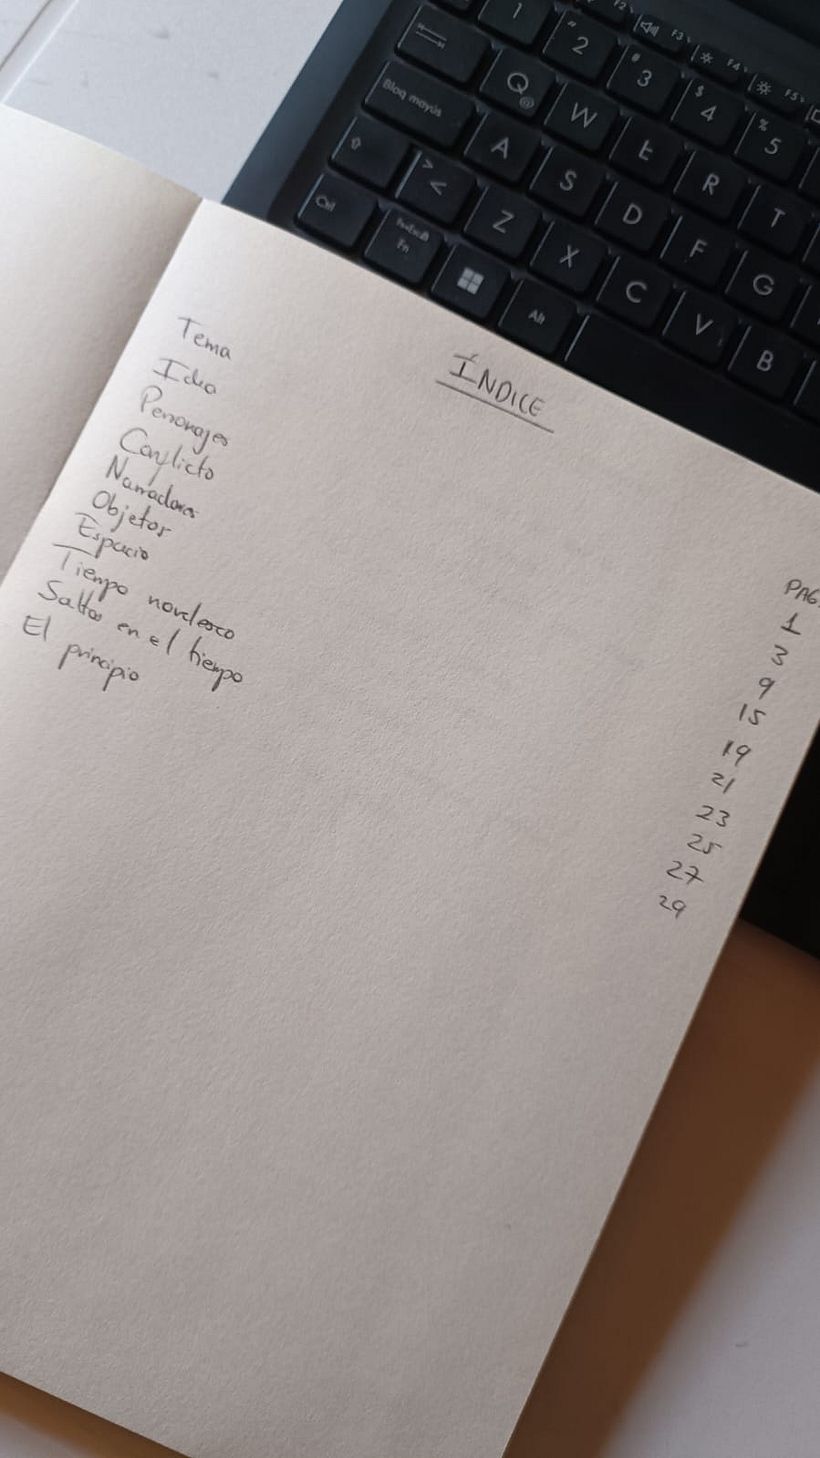 ÍNDICE
PAG.
Tema 1
Idea 3
Personajes 9
Conflicto 15
Narradores 19
Objetos 21
Espacio 23
Tiempo novelesco 25
Saltos en el tiempo 27
El principio 29
1
" 2
F2
# 3
F3
$ 4
F4
% 5
F5
Q @
W
E
R
T
Bloq mayús
A
S
D
F
G
> <
Z
X
C
V
B
Ctrl
Fn
Alt